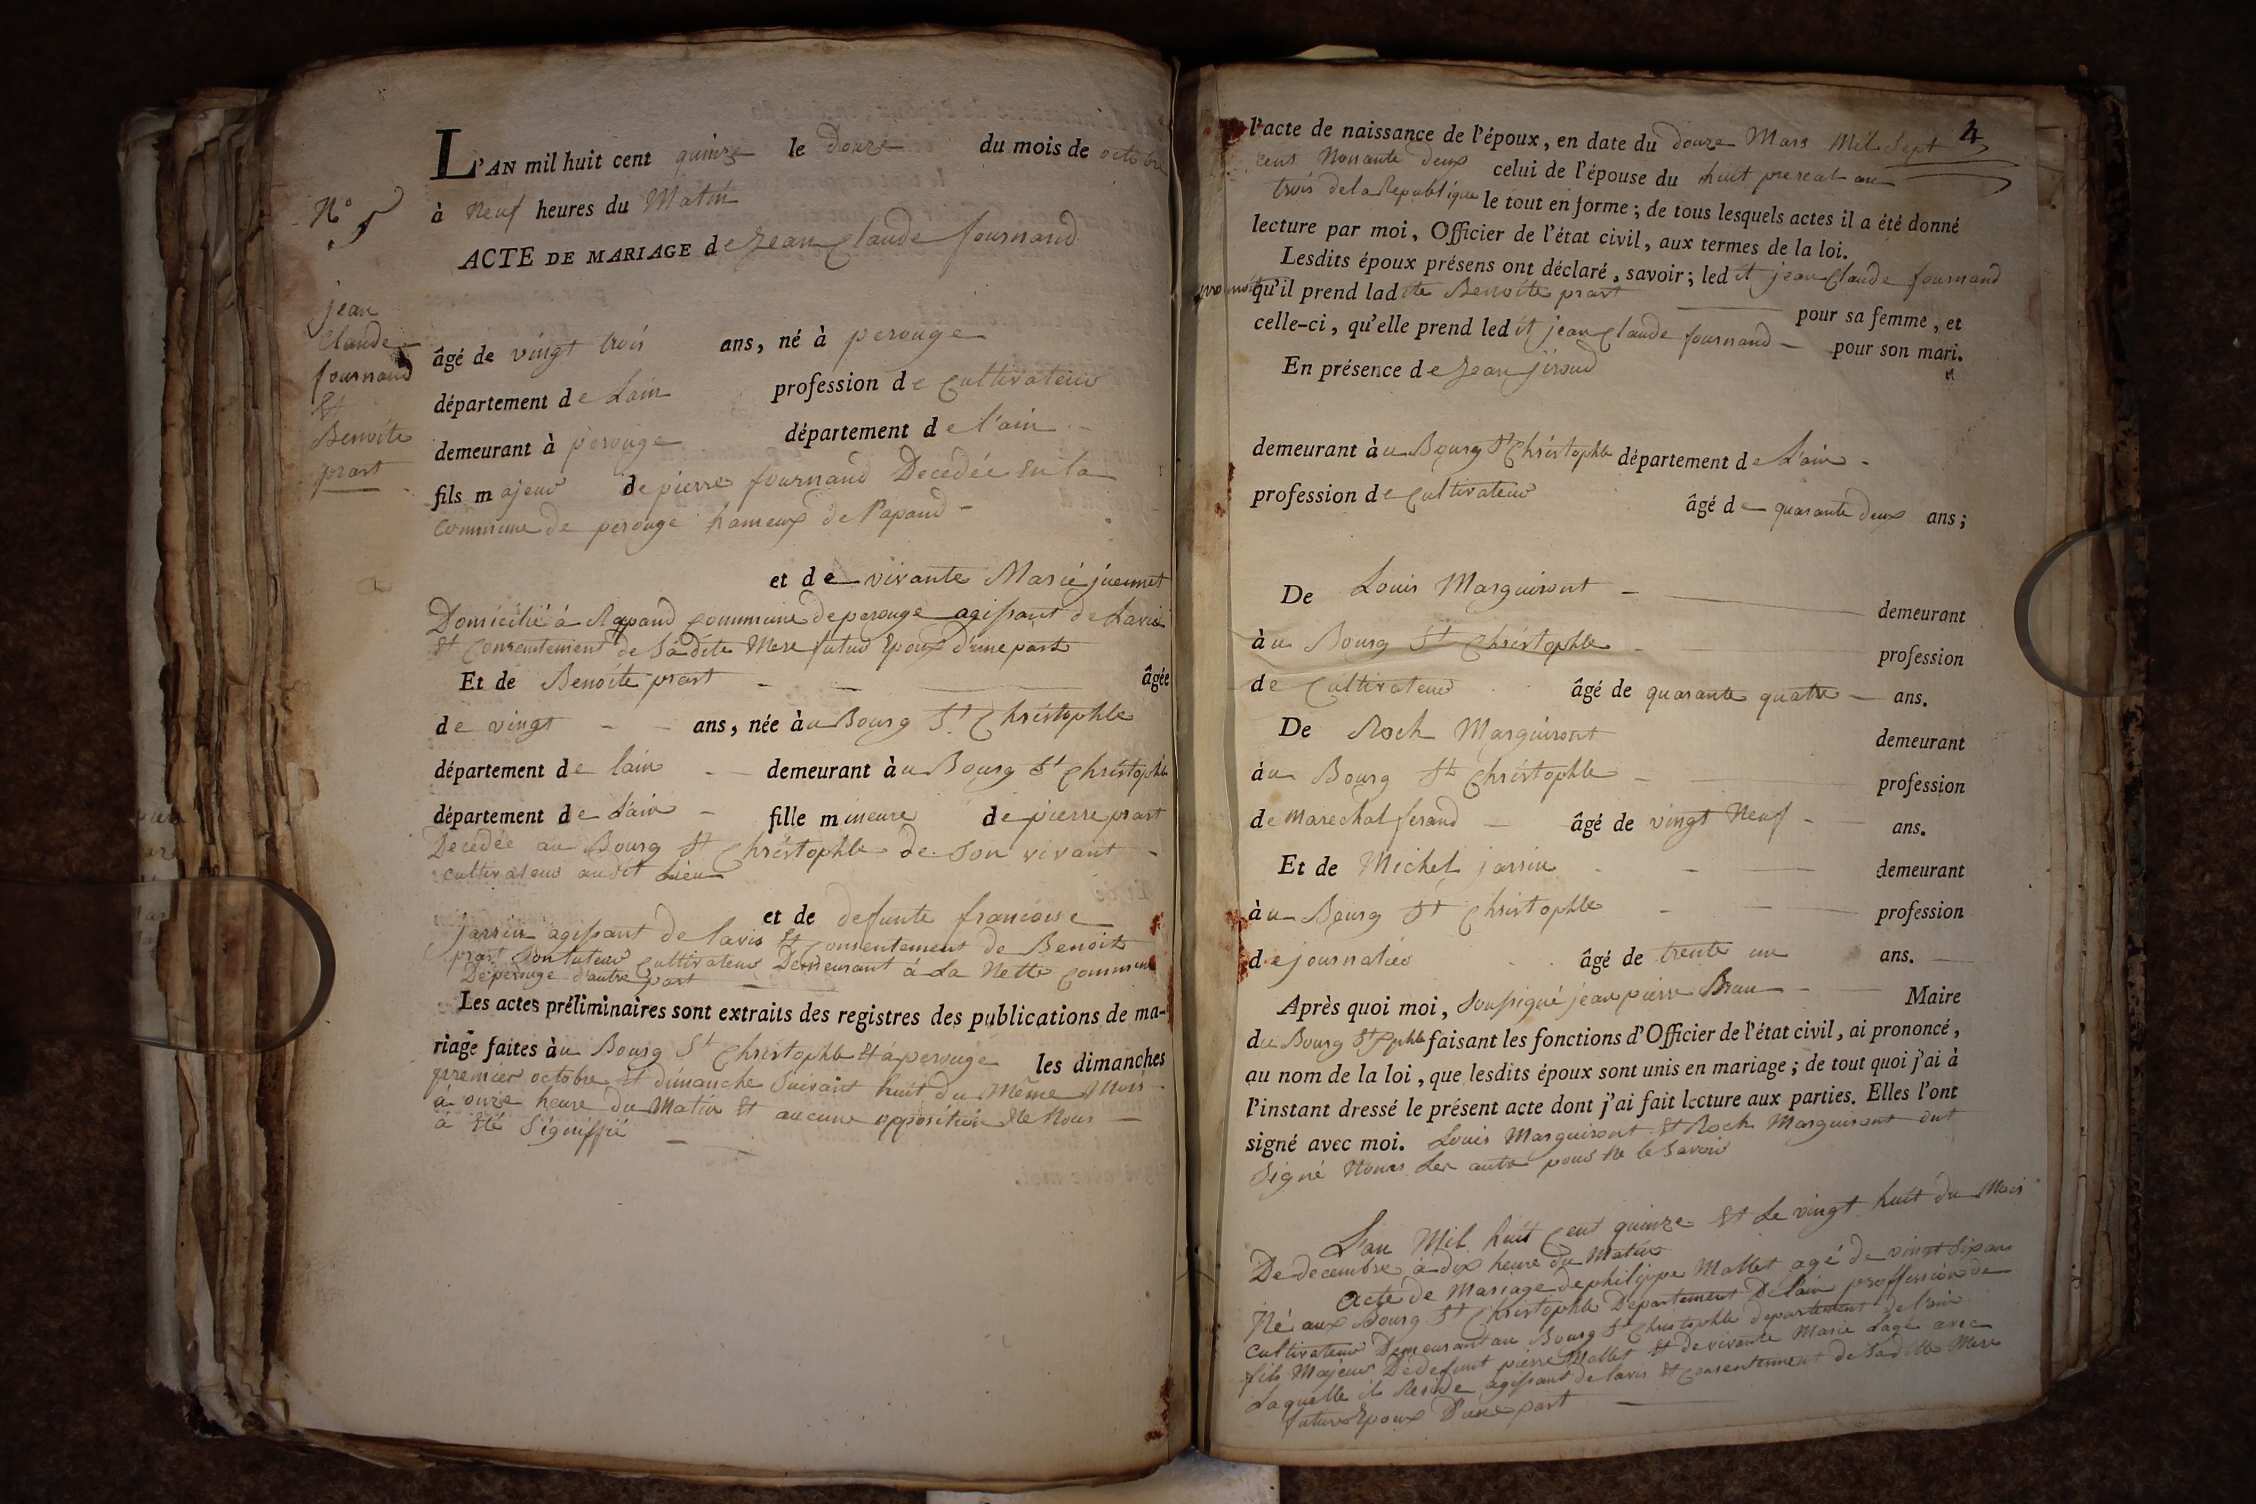 N° 5
jean
Claude
fournand
Et
Benoite
prart
L'AN mil huit cent quinze le Douze du mois de octobre
à Neuf heures du Matin
ACTE DE MARIAGE de Jean Claude fournand
âgé de vingt trois ans, né à perouge
département de Lain profession de Cultivateur
demeurant à perouge département de l'ain
fils majeur de pierre fournand Decedée En la
Commune de perouge hameux de Rapand
et de vivante Marie juennet
Domicilié à Rapand Commune de perouge agissant de Lavis
Et Consentement de Sadite Mere futur Epoux d'une part
Et de Benoite prart âgée
de vingt ans, née àu Bourg St Christophle
département de lain demeurant àu Bourg St Christophle
département de Lain fille mineure de pierre prart
Decedée au Bourg St Christophle de Son vivant
cultivateur audit Lieu
et de defunte francoise
jarrin agissant de lavis Et Consentement de Benoit
prart Son tuteur Cultivateur Demeurant à La Nette Commune
De perouge d'autre part
Les actes préliminaires sont extraits des registres des publications de ma-
riage faites àu Bourg St Christophle Et à perouge les dimanches
premier octobre et dimanche Suivant huit du Même Mois
a onze heure du Matin Et aucune opposition Ne Nous
à Eté Signiffié
4
l'acte de naissance de l'époux, en date du douze Mars Mil Sept
cens Nonante deux celui de l'épouse du huit prereal an
trois de la Republique le tout en forme; de tous lesquels actes il a été donné
lecture par moi, Officier de l'état civil, aux termes de la loi.
Lesdits époux présens ont déclaré, savoir; ledit jean Claude fournand
qu'il prend ladite Benoite prart pour sa femme, et
celle-ci, qu'elle prend ledit jean Claude fournand pour son mari.
En présence de Jean jiroud
demeurant àu Bourg St Christophle département de L'ain
profession de Cultivateur âgé de quarante deux ans;
De Louis Marguiront demeurant
àu Bourg St Christophle profession
de Cultivateur âgé de quarante quatre ans.
De Roch Marguiront demeurant
àu Bourg St Christophle profession
de Marechal ferand âgé de vingt Neuf ans.
Et de Michel jarrin demeurant
àu Bourg St Christophle profession
de journalier âgé de trente un ans.
Après quoi moi, Soussigné jean pierre Brau Maire
du Bourg St Cphle faisant les fonctions d'Officier de l'état civil, ai prononcé,
au nom de la loi, que lesdits époux sont unis en mariage; de tout quoi j'ai à
l'instant dressé le présent acte dont j'ai fait lecture aux parties. Elles l'ont
signé avec moi. Louis Marguiront Et Roch Marguiront ont
Signé Nours Les autre pour Ne le Savoir
L'an Mil huit Cent quinze Et Le vingt huit du Mois
De decembre à dix heure du Matin
Acte de Mariage de philippe Mallet agé de vingt Six ans
Né aux Bourg St Christophle Departement De lain proffession de
Cultivateur Demeurant au Bourg St Christophle departement de l'ain
fils Majeur De defunt pierre Mallet Et de vivante Marie Lage avec
Laquelle il Reside agissant de lavis Et Consentement de Sadite Mere
futur Epoux D'une part